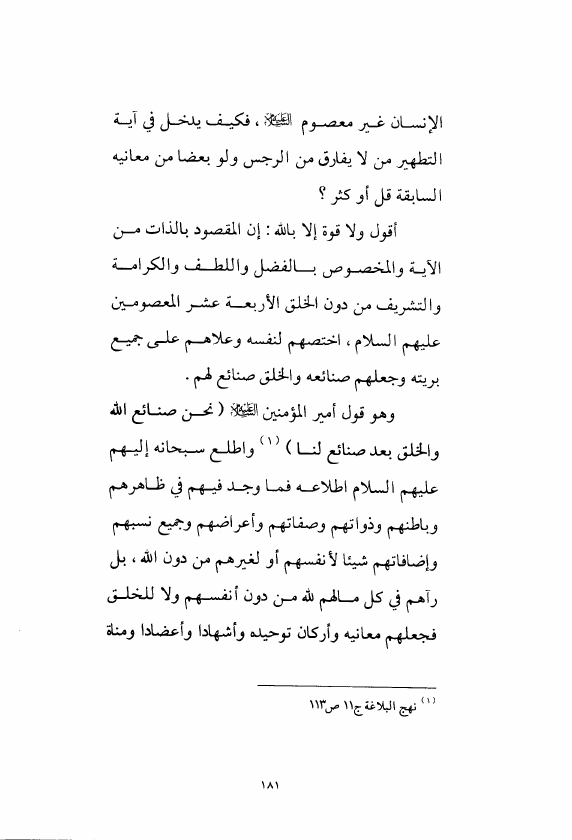 الإنسان غير معصوم عليه السلام ، فكيف يدخل في آية
التطهير من لا يفارق من الرجس ولو بعضا من معانيه
السابقة قل أو كثر ؟
أقول ولا قوة إلا بالله : إن المقصود بالذات من
الآية والمخصوص بالفضل واللطف والكرامة
والتشريف من دون الخلق الأربعة عشر المعصومين
عليهم السلام ، اختصهم لنفسه وعلاهم على جميع
بريته وجعلهم صنائعه والخلق صنائع لهم .
وهو قول أمير المؤمنين عليه السلام ( نحن صنائع الله
والخلق بعد صنائع لنا ) (١) واطلع سبحانه إليهم
عليهم السلام اطلاعه فما وجد فيهم في ظاهرهم
وباطنهم وذواتهم وصفاتهم وأعراضهم وجميع نسبهم
وإضافاتهم شيئا لأنفسهم أو لغيرهم من دون الله ، بل
رآهم في كل مالهم لله من دون أنفسهم ولا للخلق
فجعلهم معانيه وأركان توحيده وأشهادا وأعضادا ومناة
(١) نهج البلاغة ج١١ ص١١٣
١٨١